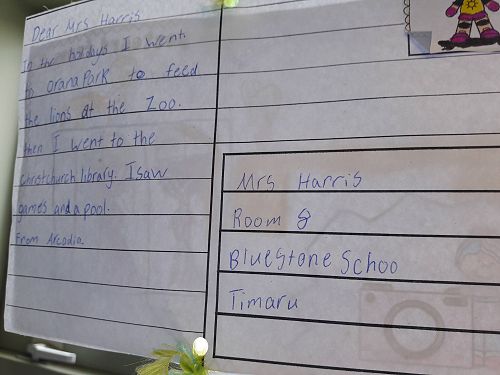 Dear Mrs Harris
In the holdays I went
to orana Park to feed
the lions at the Zoo.
then I went to the
christchurch library. I saw
games and a pool.
From Arcadia.
Mrs Harris
Room 8
Bluestone Schoo
Timaru